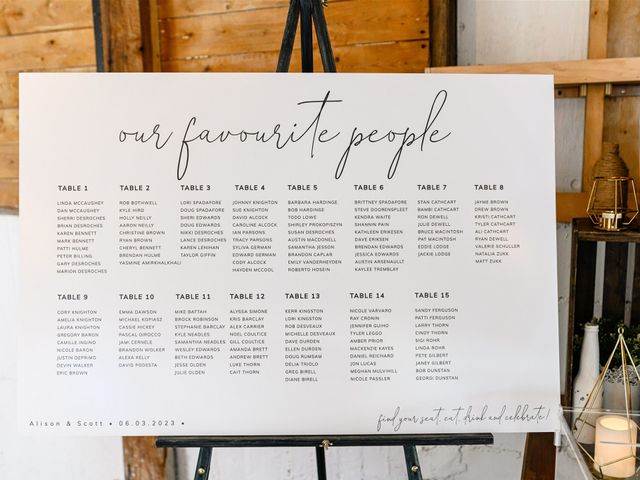 our favourite people
TABLE 1
LINDA MCCAUGHEY
DAN MCCAUGHEY
SHERRI DESROCHES
BRIAN DESROCHES
KAREN BENNETT
MARK BENNETT
PATTI HULME
PETER BILLING
GARY DESROCHES
MARION DESROCHES
TABLE 2
ROB BOTHWELL
KYLE HIRD
HOLLY NEILLY
AARON NEILLY
CHRISTINE BROWN
RYAN BROWN
CHERYL BENNETT
BRENDAN HULME
YASMINE AMIRKHALKHALI
TABLE 3
LORI SPADAFORE
DOUG SPADAFORE
SHERI EDWARDS
DOUG EDWARDS
NIKKI DESROCHES
LANCE DESROCHES
KAREN LENIHAN
TAYLOR GIFFIN
TABLE 4
JOHNNY KNIGHTON
SUE KNIGHTON
DAVID ALCOCK
CAROLINE ALCOCK
IAN PARSONS
TRACY PARSONS
SYLIVA GERMAN
EDWARD GERMAN
CODY ALCOCK
HAYDEN MCCOOL
TABLE 5
BARBARA HARDINGE
BOB HARDINGE
TODD LOWE
SHIRLEY PROKOPISZYN
SUSAN DESROCHES
AUSTIN MACDONELL
SAMANTHA JESSOP
BRANDON CAPLAR
EMILY VANDERHEYDEN
ROBERTO HOSEIN
TABLE 6
BRITTNEY SPADAFORE
STEVE DOORENSPLEET
KENDRA WAITE
SHANNIN PAIN
KATHLEEN ERIKSEN
DAVE ERIKSEN
BRENDAN EDWARDS
JESSICA EDWARDS
AUSTIN ARSENAULT
KAYLEE TREMBLAY
TABLE 7
STAN CATHCART
BAMBI CATHCART
RON DEWELL
JULIE DEWELL
BRUCE MACINTOSH
PAT MACINTOSH
EDDIE LODGE
JACKIE LODGE
TABLE 8
JAYME BROWN
DREW BROWN
KRISTI CATHCART
TYLER CATHCART
ALI CATHCART
RYAN DEWELL
VALERIE SCHULLER
NATALIA ZUKK
MATT ZUKK
TABLE 9
CORY KNIGHTON
AMELIA KNIGHTON
LAURA KNIGHTON
GREGORY BARON
CAMILLE INGINO
NICOLE BARON
JUSTIN DEPRIMO
DEVIN WALKER
ERIC BROWN
TABLE 10
EMMA DAWSON
MICHAEL KOPIASZ
CASSIE HICKEY
PASCAL DIROCCO
JAMI CERNELE
BRANDON WOLKER
ALEXA KELLY
DAVID PODESTA
TABLE 11
MIKE BATTAH
BROCK ROBINSON
STEPHANIE BARCLAY
KYLE NEADLES
SAMANTHA NEADLES
WESLEY EDWARDS
BETH EDWARDS
JESSE OLDEN
JULIE OLDEN
TABLE 12
ALYSSA SIMONE
KRIS BARCLAY
ALEX CARRIER
NOEL COULTICE
GILL COULTICE
AMANDA BRETT
ANDREW BRETT
LUKE THORN
CAIT THORN
TABLE 13
KERR KINGSTON
LORI KINGSTON
ROB DESVEAUX
MICHELLE DESVEAUX
DAVE DURDEN
ELLEN DURDEN
DOUG RUMSAM
DELIA TRIOLO
GREG BIRELL
DIANE BIRELL
TABLE 14
NICOLE VARVARO
RAY CRONIN
JENNIFER GUIHO
TYLER LEGGO
AMBER PRIOR
MACKENZIE KAYES
DANIEL REICHARD
JON LUCAS
MEGHAN MULVIHILL
NICOLE PASSLER
TABLE 15
SANDY FERGUSON
PATTI FERGUSON
LARRY THORN
CINDY THORN
SIGI ROHR
LINDA ROHR
PETE GILBERT
JANEY GILBERT
BOB DUNSTAN
GEORGI DUNSTAN
Alison & Scott • 06.03.2023 •
find your seat, eat, drink and celebrate!